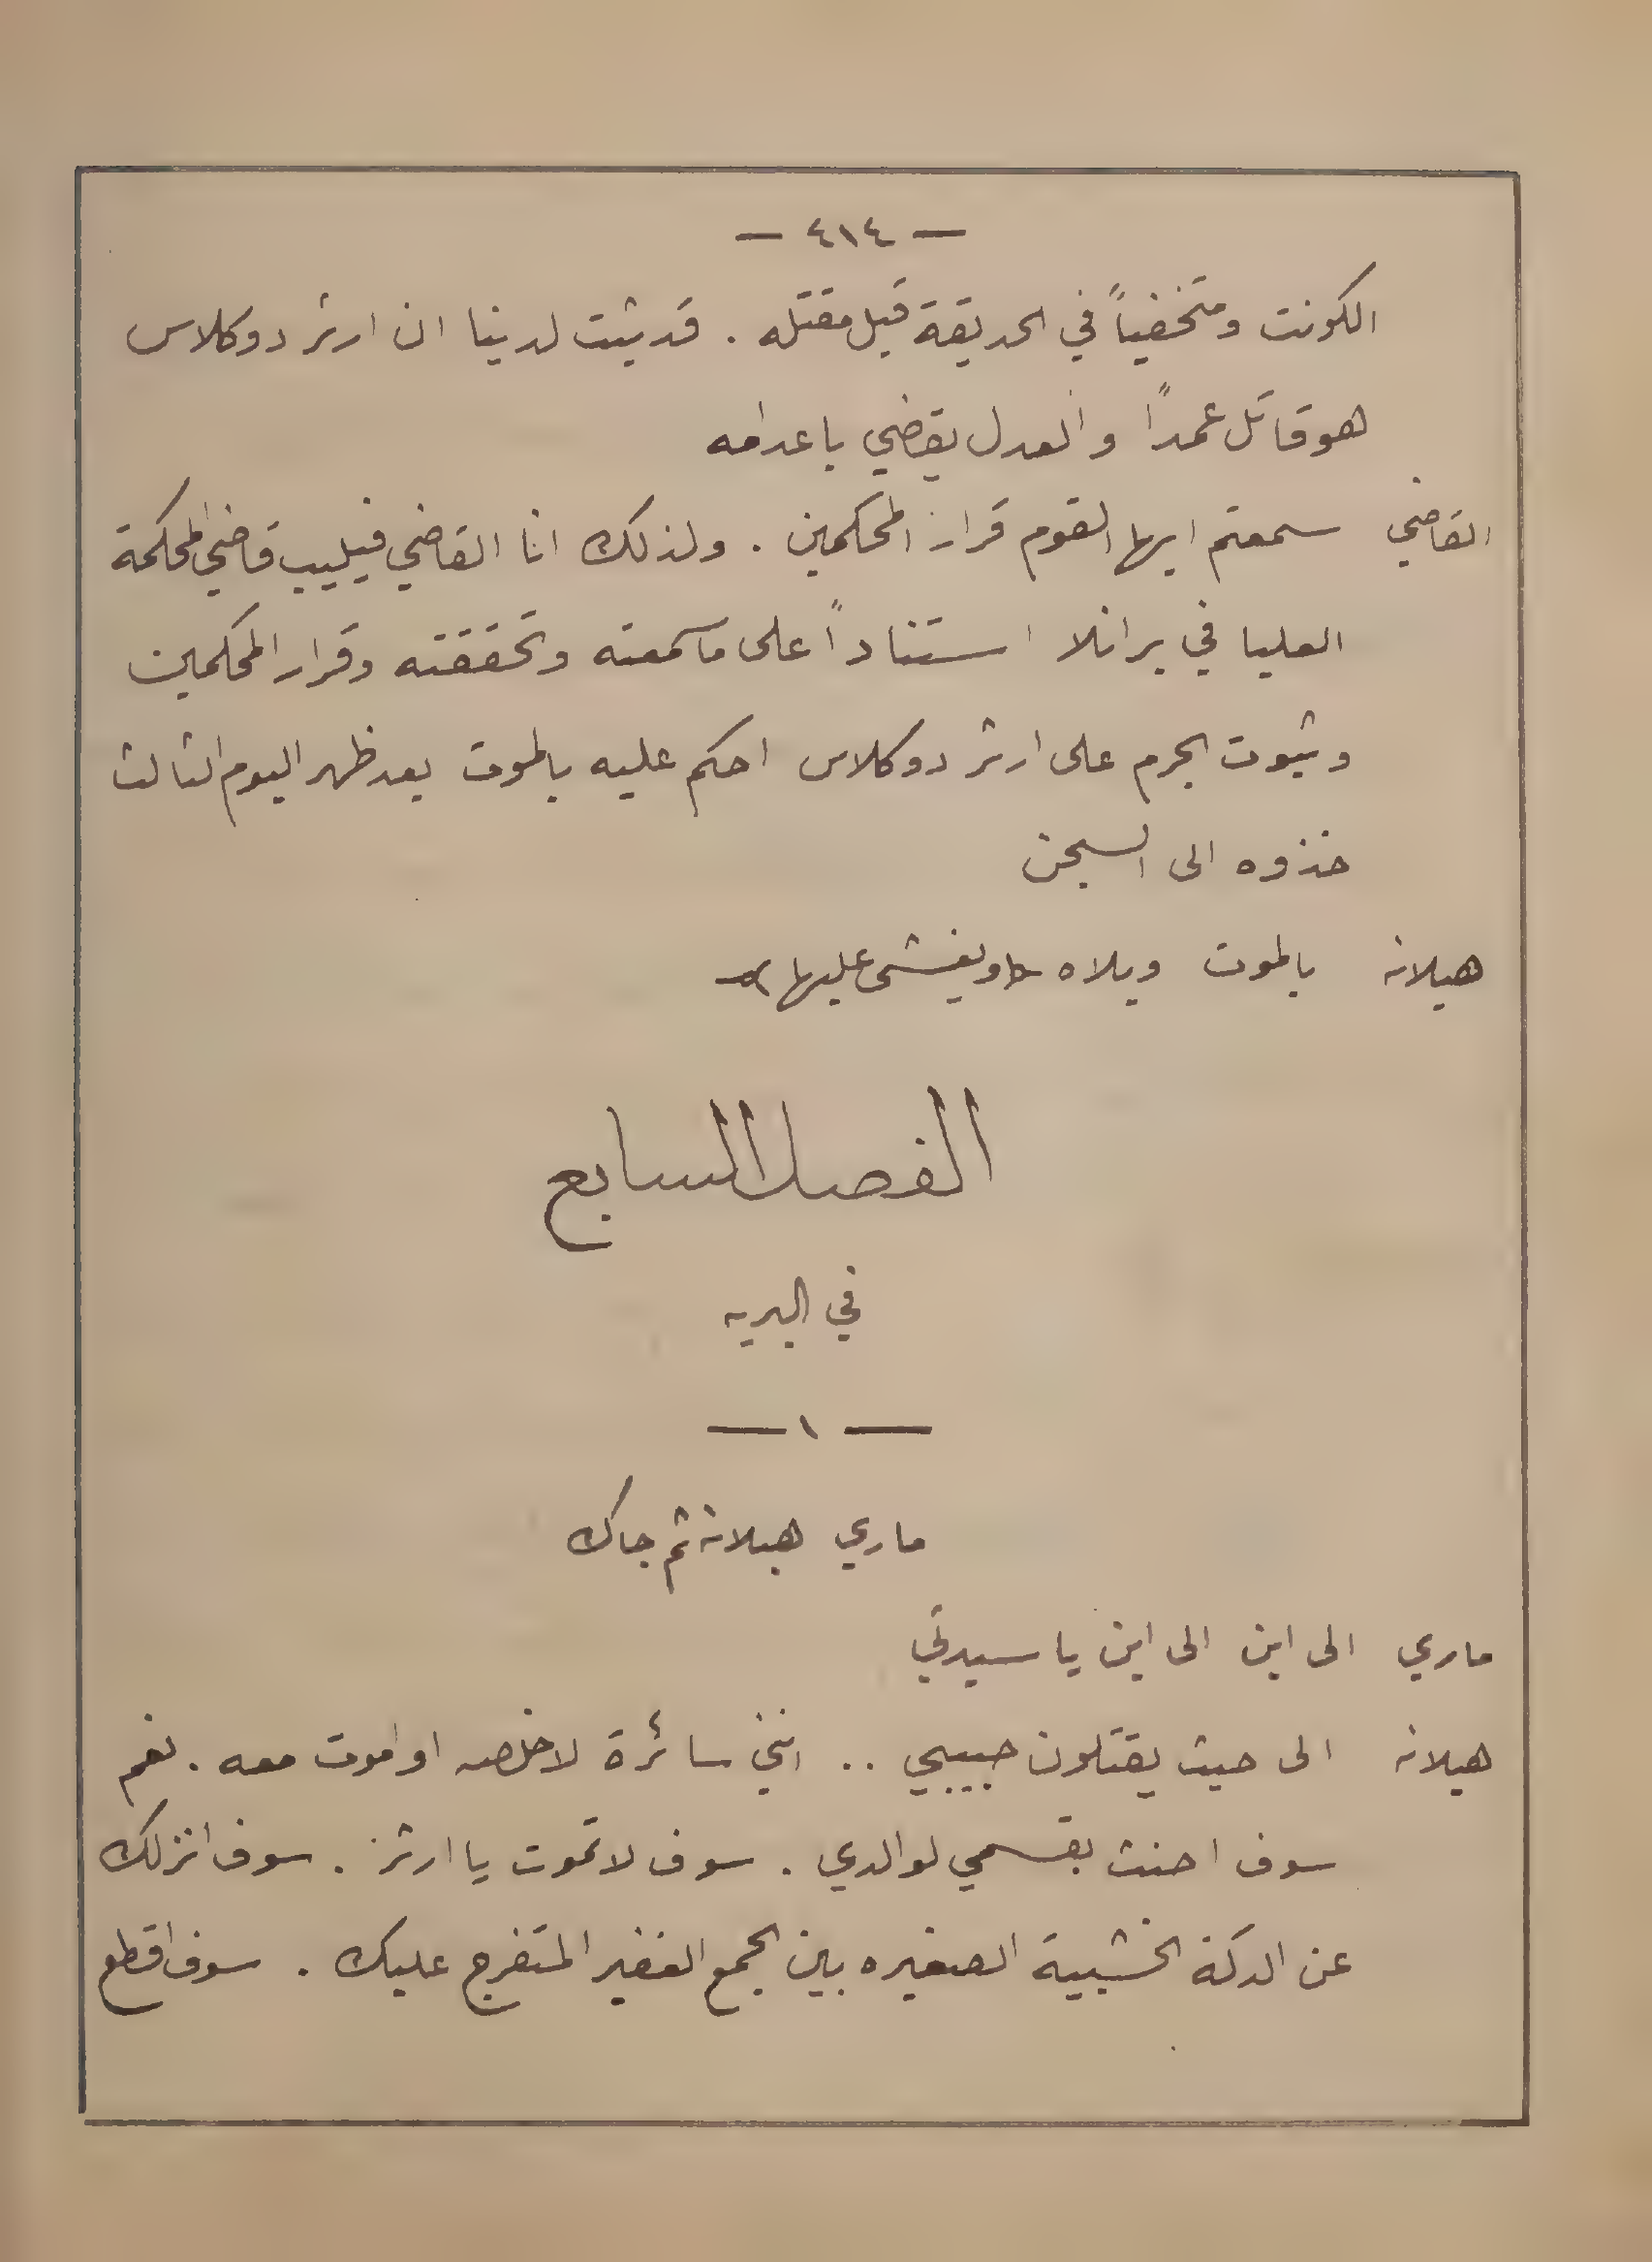 — ٤١٤ —
الكونت ومتخفياً في الحديقة قبل مقتله . قد ثبت لدينا ان ارثر دوكلاس
هو قاتل عمداً والعدل يقضي باعدامه
القاضي سمعتم ايها القوم قرار المحكمين . ولذلك انا القاضي فيليب قاضي المحكمة
العليا في برانلا استناداً على ما سمعته وتحققته وقرار المحكمين
وثبوت الجرم على ارثر دوكلاس احكم عليه بالموت بعد ظهر اليوم الثالث
خذوه الى السجن
هيلانه بالموت ويلاه ويغشى عليها
الفصل السابع
في البريه
— ١ —
ماري هيلانه ثم جاك
ماري الى اين الى اين يا سيدتي
هيلانه الى حيث يقتلون حبيبي .. انني سائرة لاخلصه او اموت معه . نعم
سوف احنث بقسمي لوالدي . سوف لا تموت يا ارثر . سوف انزلك
عن الدكة الخشبية الصغيره بين الجمع الغفير المتفرج عليك . سوف اقطع